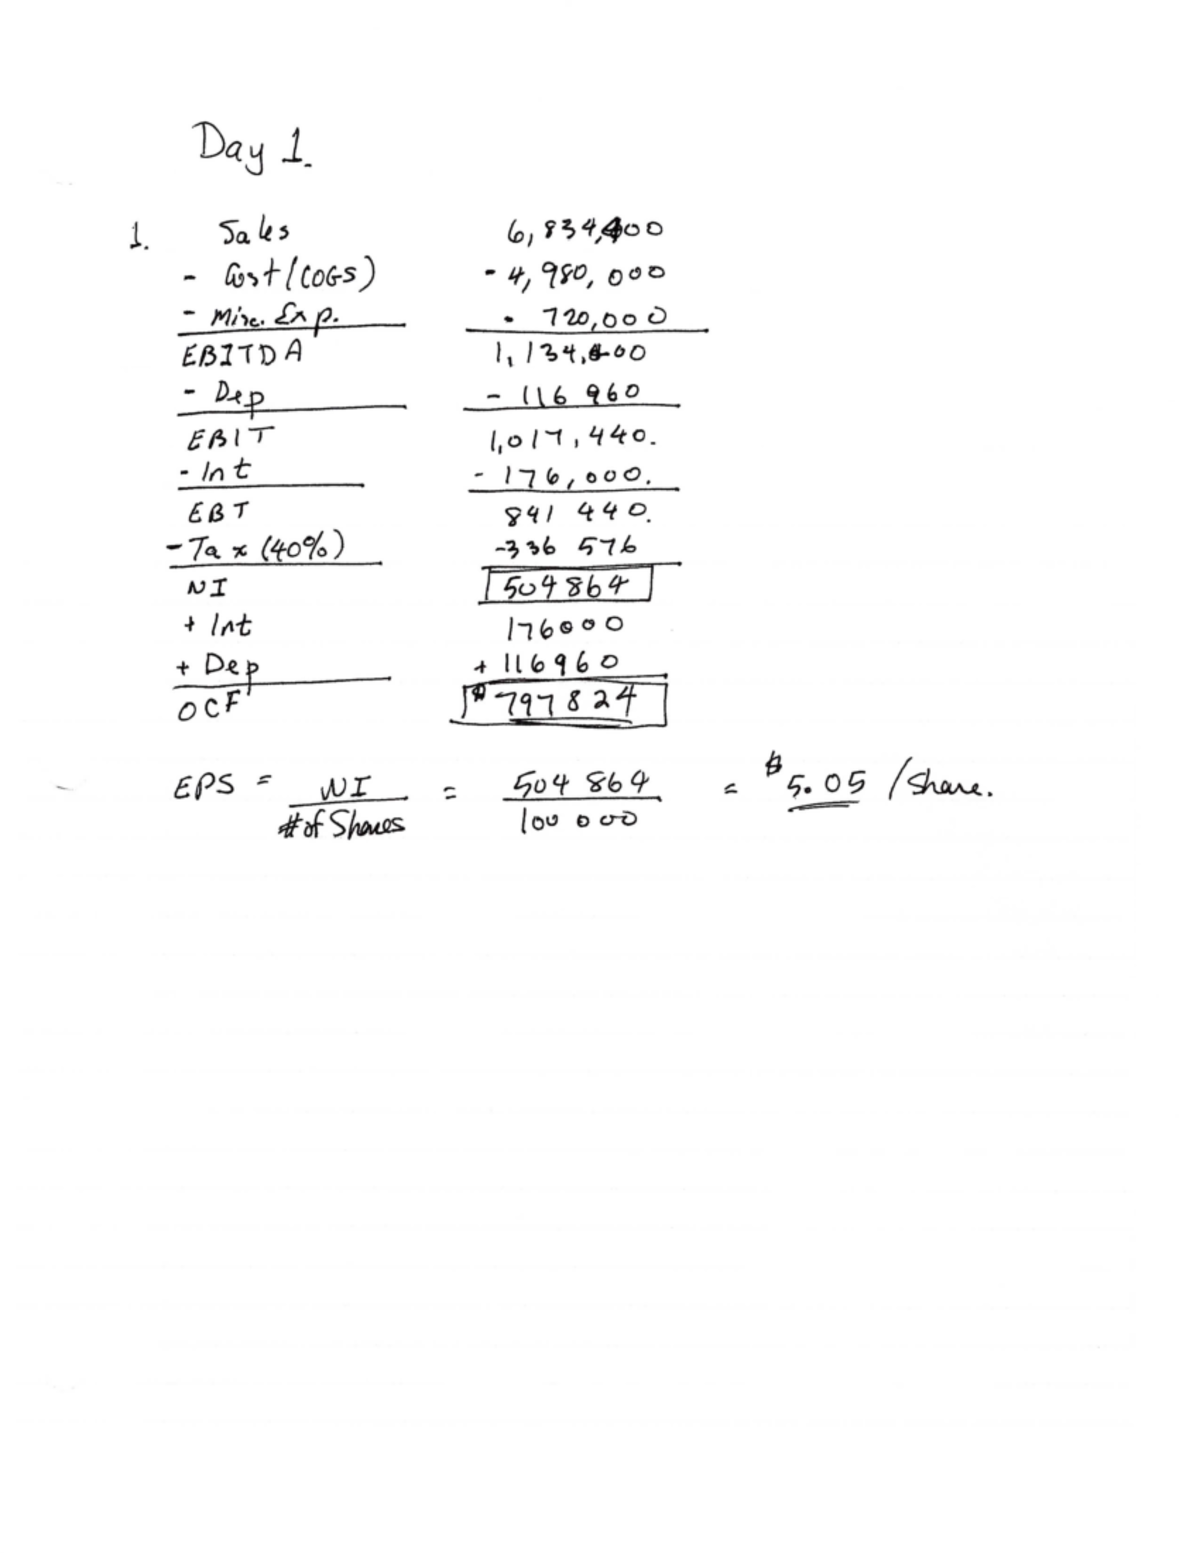 Day 1.
1. Sales 6,834,400
- Cost/(COGS) - 4,980,000
- Misc. Exp. - 720,000
EBITDA 1,134,400
- Dep - 116 960
EBIT 1,017,440.
- Int - 176,000.
EBT 841 440.
- Tax (40%) -336 576
NI 504864
+ Int 176000
+ Dep + 116960
OCF $ 797824
EPS = NI / # of Shares = 504 864 / 100 000 = $5.05 /Share.